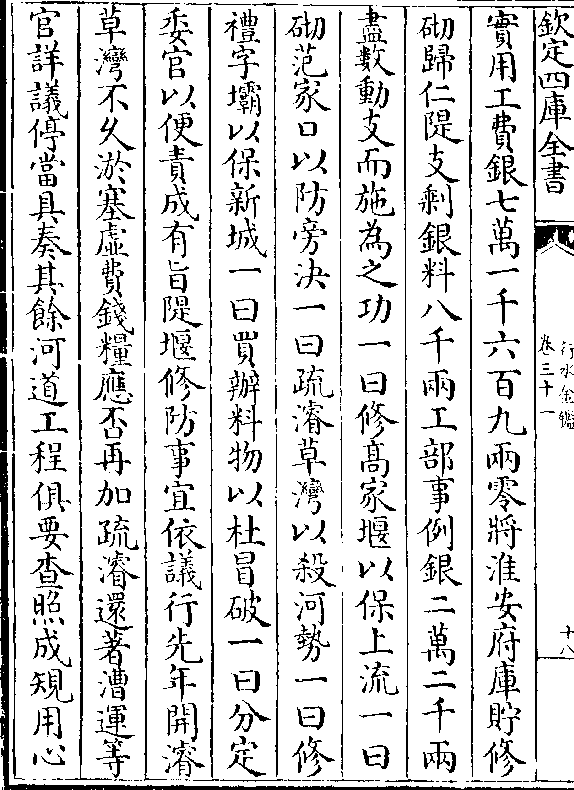 欽定四庫全書
行水金鑑
卷三十一
十八
實用工費銀七萬一千六百九兩零將淮安府庫貯修
砌歸仁隄支剩銀料八千兩工部事例銀二萬二千兩
盡數動支而施為之功一曰修髙家堰以保上流一曰
砌范家口以防旁決一曰疏濬草灣以殺河勢一曰修
禮字壩以保新城一曰買辦料物以杜冒破一曰分定
委官以便責成有旨隄堰修防事宜依議行先年開濬
草灣不乆淤塞虛費錢糧應否再加疏濬還著漕運等
官詳議停當具奏其餘河道工程俱要查照成規用心